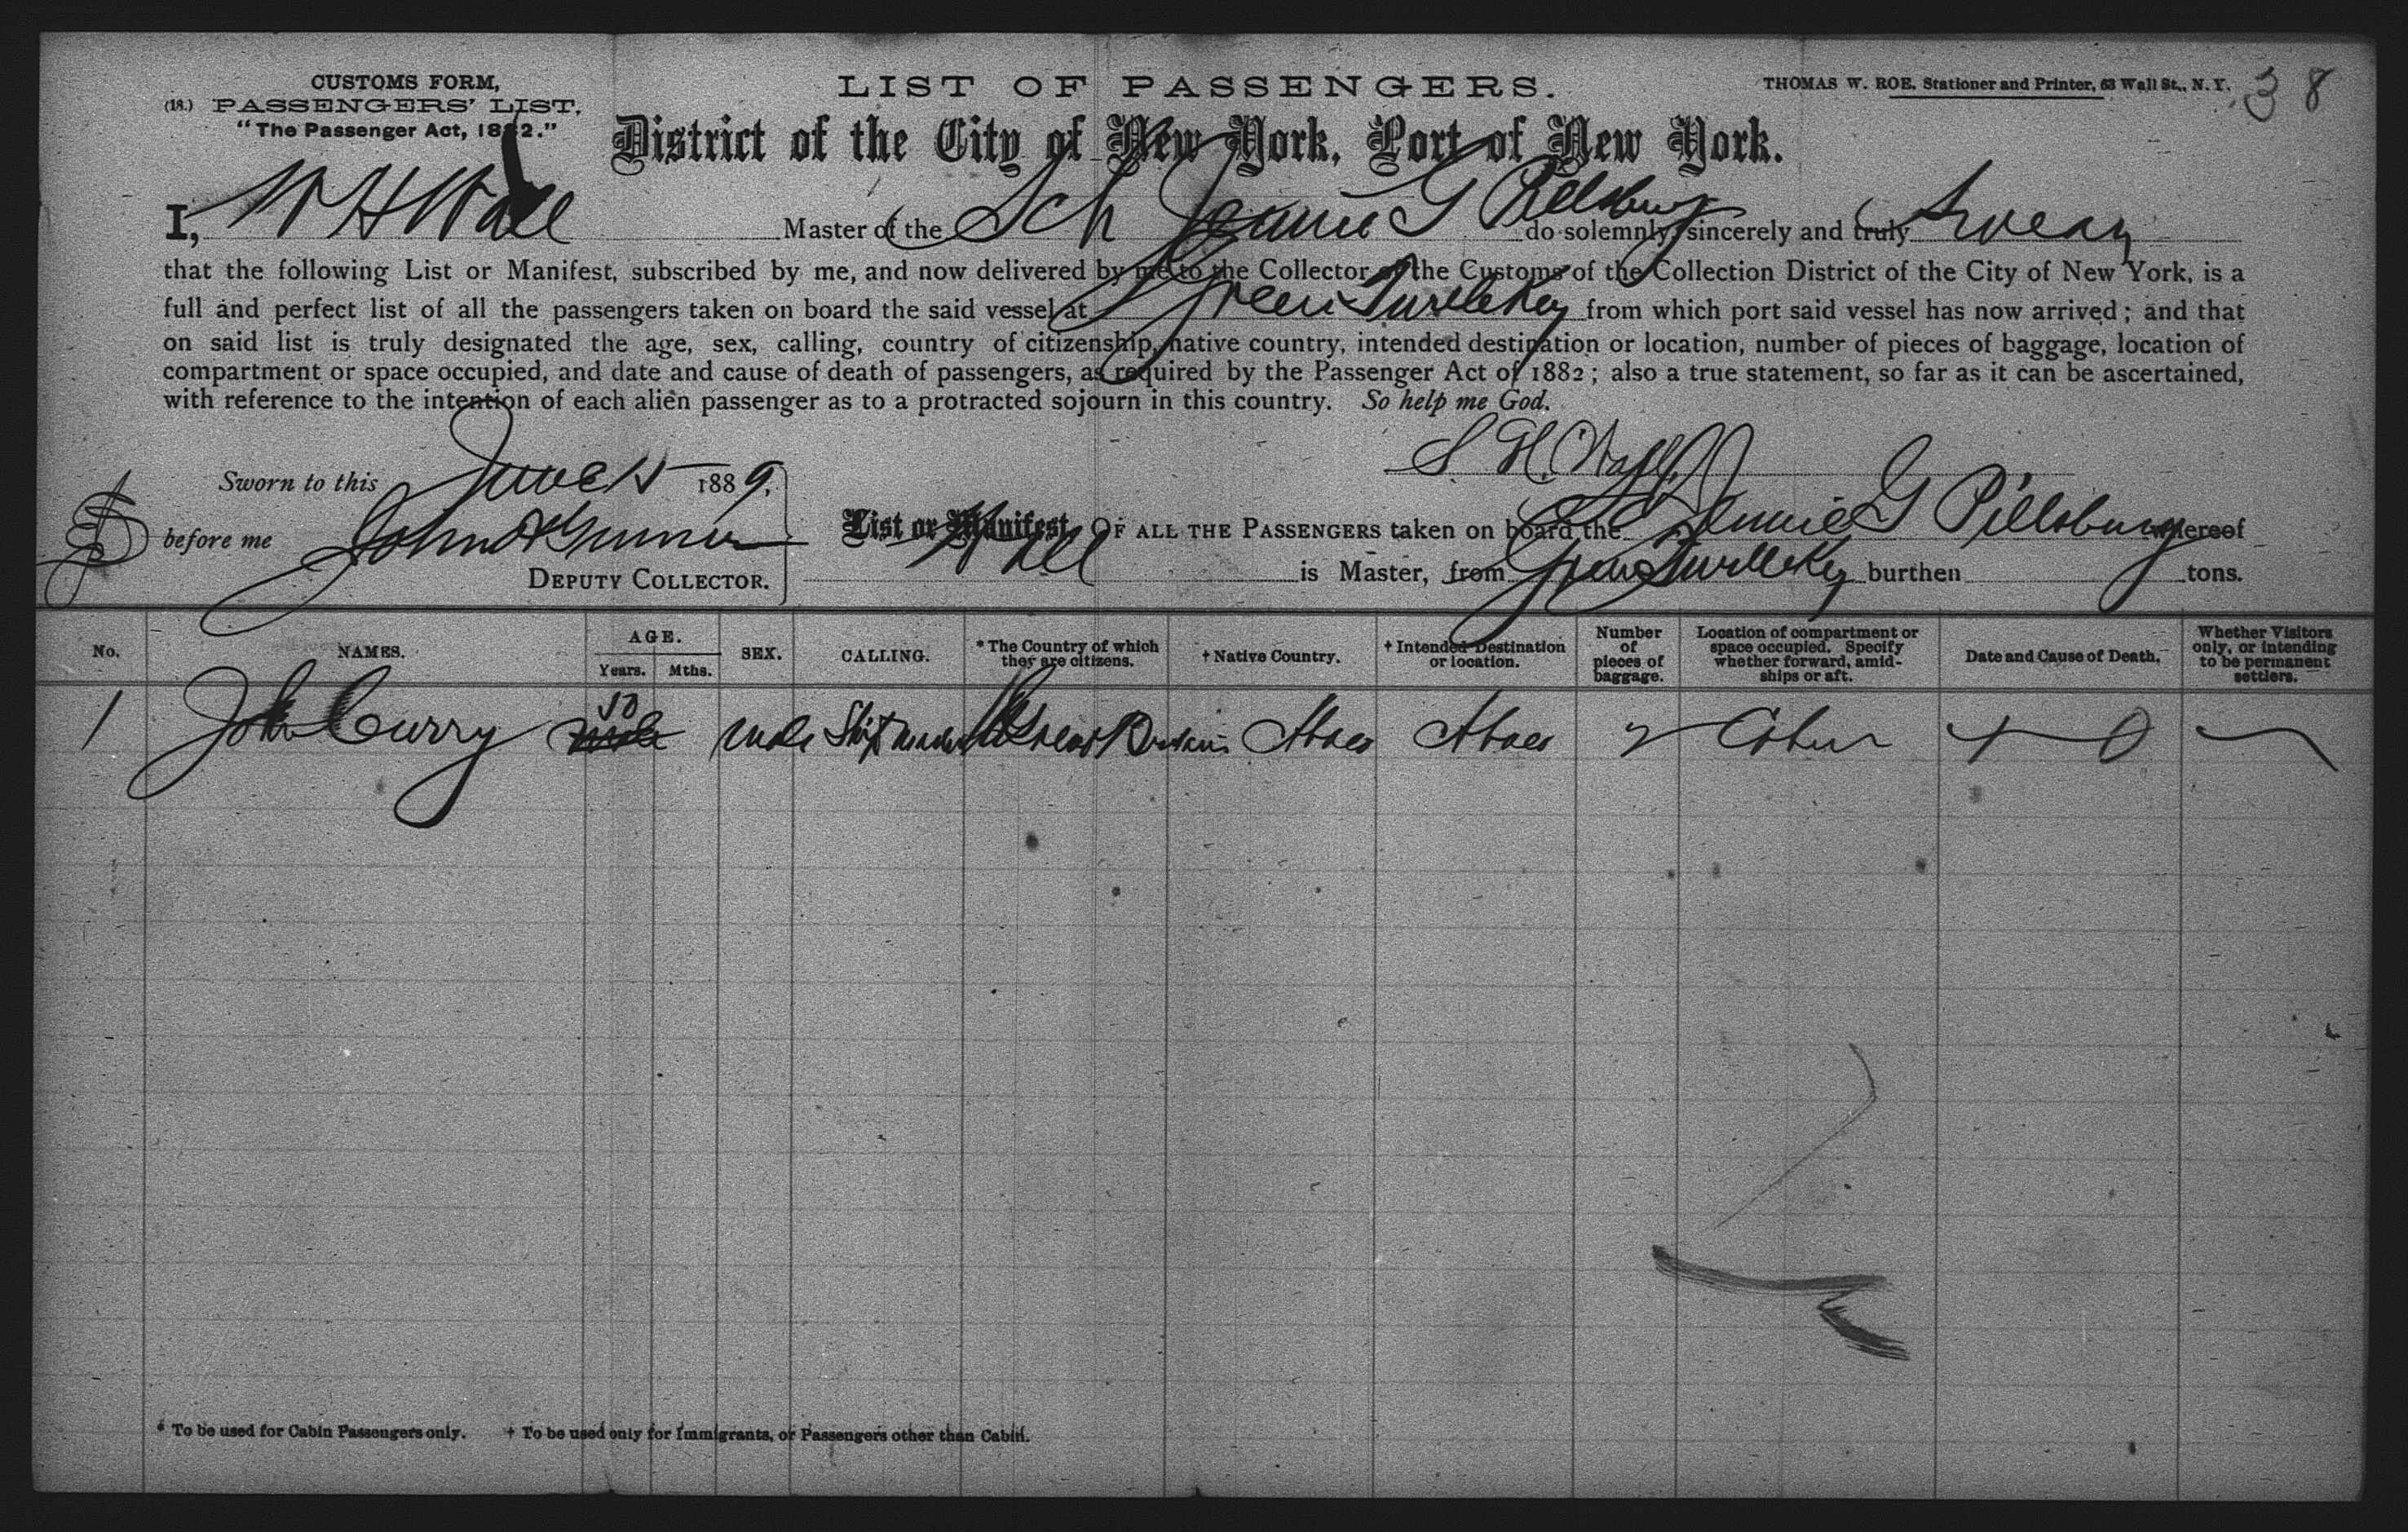 CUSTOMS FORM,
(18.) PASSENGERS' LIST,
"The Passenger Act, 1882."
LIST OF PASSENGERS.
THOMAS W. ROE, Stationer and Printer, 63 Wall St., N. Y.
38
District of the City of New York, Port of New York.
I, W H Wall Master of the Sch Jennie G Pillsbury do solemnly, sincerely and truly Swear
that the following List or Manifest, subscribed by me, and now delivered by me to the Collector of the Customs of the Collection District of the City of New York, is a
full and perfect list of all the passengers taken on board the said vessel at Green Turtle Key from which port said vessel has now arrived; and that
on said list is truly designated the age, sex, calling, country of citizenship, native country, intended destination or location, number of pieces of baggage, location of
compartment or space occupied, and date and cause of death of passengers, as required by the Passenger Act of 1882; also a true statement, so far as it can be ascertained,
with reference to the intention of each alien passenger as to a protracted sojourn in this country. So help me God.
Sworn to this June 15 1889.
before me John
DEPUTY COLLECTOR.
List or Manifest OF ALL THE PASSENGERS taken on board the Jennie G Pillsbury whereof
Wall is Master, from Green Turtle Key burthen tons.
No. NAMES. AGE. Years. Mths. SEX. CALLING. * The Country of which they are citizens. † Native Country. † Intended Destination or location. Number of pieces of baggage. Location of compartment or space occupied. Specify whether forward, amidships or aft. Date and Cause of Death. Whether Visitors only, or intending to be permanent settlers.
1 John Curry 50 male Great Britain Abaco Abaco 2
* To be used for Cabin Passengers only. † To be used only for Immigrants, or Passengers other than Cabin.